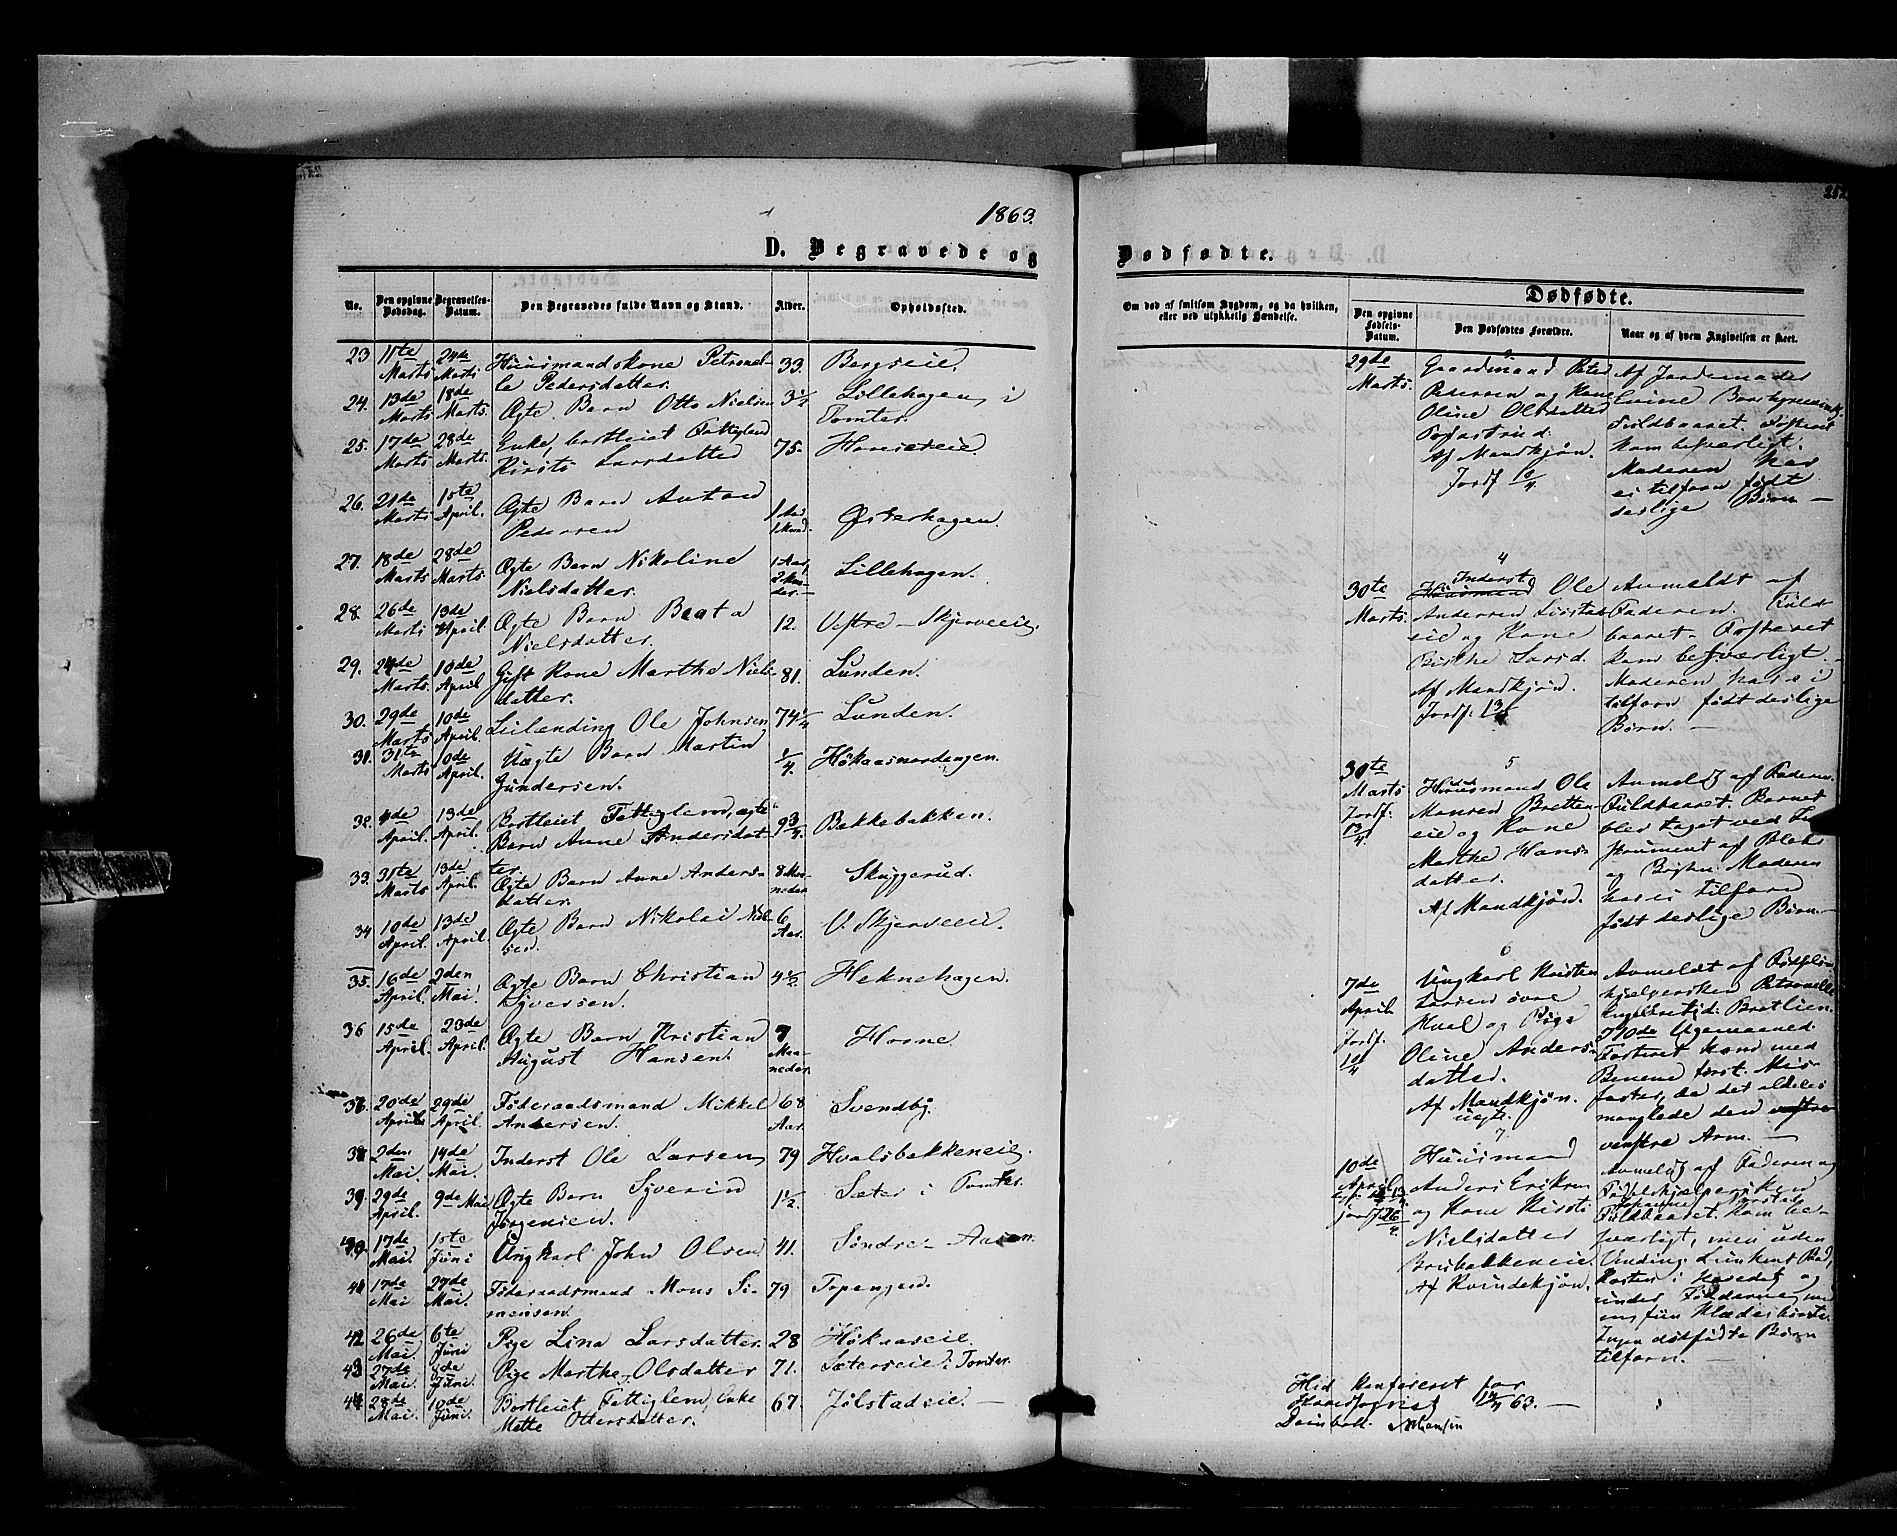 1863.
D. Begravede og
No.
Den opgivne Dødsdag.
Begravelses-Datum.
Den Begravedes fulde Navn og Stand.
Alder.
Opholdssted.
23 11te Marts 24de Marts Huusmandskone Petronel-
le Pedersdatter. 33. Bergseie.
24. 13de Marts 18de Marts. Ægte Barn Otto Nielsen 3½ Lillehagen i
Tomter.
25. 17de Marts 28de Marts. Enke, bortleiet Fattiglem
Kirsti Larsdatter 75. Horneseie.
26. 21de Marts 1ste April. Ægte Barn Anton
Pedersen 1 Aar 1 Maand. Østerhagen.
27. 18de Marts 28de Marts Ægte Barn Nikoline
Nielsdatter. 1 Aar, 2 Maa-
der. Lillehagen.
28. 26de Marts 13de April. Ægte Barn Beata
Nielsdatter. 12. Vestre-Skjerveeie.
29. 24de Marts. 10de April Gift Kone Marthe Niels-
datter. 81. Lunden.
30. 29de Marts 10de April. Leilænding Ole Johnsen 74¼ Lunden.
31. 31te Marts 10de April. Uægte Barn Martin
Gundersen. ¼. Høkaasnordengen.
32. 4de April. 13de April. Bortleiet Fattiglem, ægte
Barn Anne Andersdat-
ter. 9¾. Bakkebakken.
33. 25te Marts 13de April. Ægte Barn Anne Anders-
datter. 8 Maa-
neder Skuggerud.
34 10de April. 13de April. Ægte Barn Nikolai Niel-
sen. 6 Aar. V. Skjerveeie.
35. 16de April. 2den Mai. Ægte Barn Christian
Syversen. 4½ Heknehagen.
36 15de April. 23de April. Ægte Barn Kristian
August Hansen. 7 Maa-
neder. Horne
37. 20de April 29de April. Føderaadsmand Mikkel
Andersen. 68 Aar. Svendby.
38 2den Mai. 14de Mai. Inderst Ole Larsen 79 Hvalsbakkeneie.
39. 29de April. 9de Mai Ægte Barn Syverin
Jørgensen. 1½. Sæter i Tomter.
40. 17de Mai. 1ste Juni Ungkarl John Olsen 41. Søndre-Aasen.
41 17de Mai 27de Mai. Føderaadsmand Mons Si-
mensen. 79 Topengen.
42 26de Mai. 6te Juni Pige Lina Larsdatter. 28 Høkaaseie.
43 27de Mai. 8de Juni. Pige Marthe Olsdatter 71. Sæterseie i Tomter.
44 28de Mai. 10de Juni. Bortleiet Fattiglem, Enke
Mette Ottersdatter. 67. Jølstadeie.
Dødfødte.
Om død af smitsom Sygdom, og da hvilken,
eller ved ulykkelig Hændelse.
Dødfødte.
Den opgivne Fødsels-Datum.
Den Dødfødtes Forældre.
Naar og af hvem Angivelsen er skeet.
29de Marts.
Gaardmand Peder
Pedersen og Kone
Oline Olsdatter
Af Mandkjøn.
Jordf.
Af Jordemoder
Fuldbaaret. Fosteret
kom besværligt.
Moderen har
ei tilforn født
deslige Børn
4
30te Marts.
Inderst
Huusmand Ole
Andersen
eie og Kone
Birthe Larsd.
Af Mandkjøn.
Jordf. 13/4
Anmeldt af
Faderen. Fuld-
baaret. Fosteret
kom besværligt.
Moderen har ei
tilforn født deslige
Børn.
5
30te Marts
Jordf: 13/4.
Huusmand Ole
Monsen Bretten-
eie og Kone
Marthe Hans-
datter.
Af Mandkjøn.
Anmeldt af Faderen.
Fuldbaaret. Barnet
blev taget ved In-
strument af
Moderen
har ei tilforn
født deslige Børn.
6
7de April.
Jordf.
Ungkarl Kristen
Larsen øvre
Hval og Pige
Oline Anders-
datter.
Af Mandkjøn.
uægte.
Anmeldt af Fødsels-
hjælpersken Petronelle
Brettien.
Fosteret kom med
Benene først. Mis-
foster, da det aldeles
manglede den venstre
venstre Arm.
7
10de April
jordf. 26/4.
Huusmand
Anders Eriksen
og Kone Kirsti
Nielsdatter
Brubakkeneie.
Af Kvindekjøn.
Anmeldt af Faderen og
Fødselshjælpersken
Johanne
Fuldbaaret. Kom be-
sværligt, men uden
Vending. Lunkent Bad,
under Fødderne med
Ingen dødfødte Børn
tilforn.
Hid konfereret for
63.